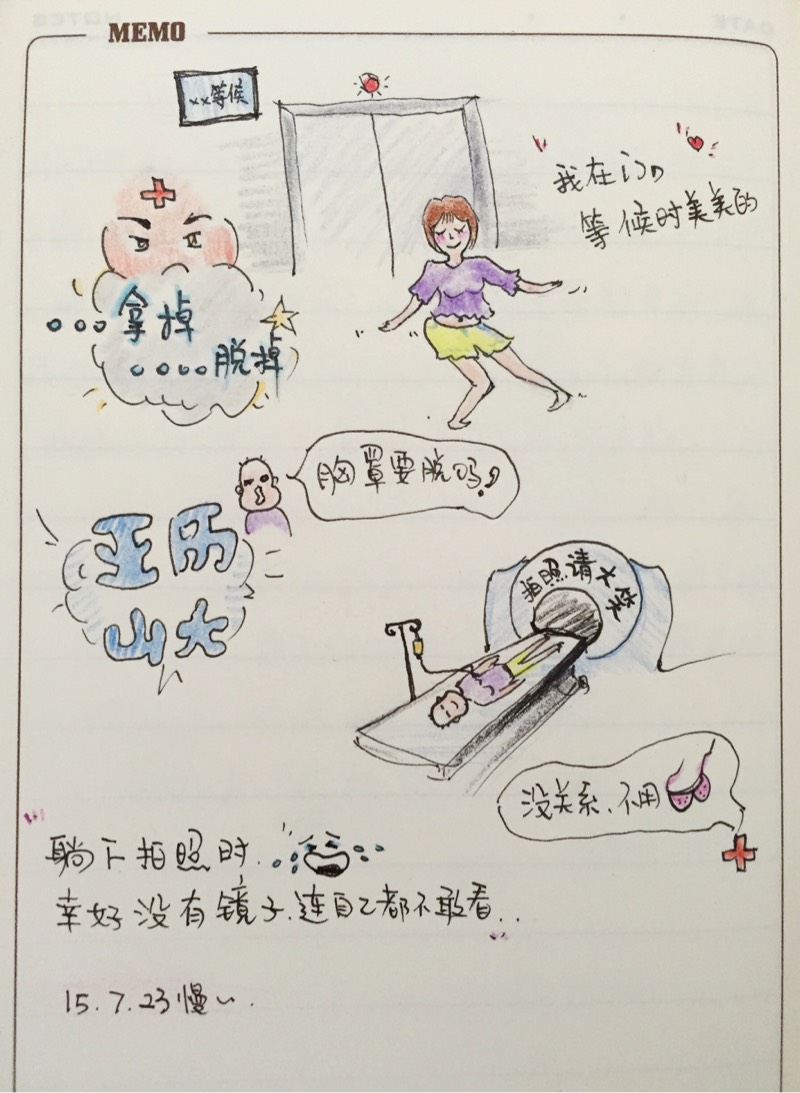 MEMO
××等候
我在门口
等候时美美的
。。。拿掉
。。。。脱掉
胸罩要脱吗?
亚历
山大
拍照请大笑
没关系、不用
躺下拍照时.
幸好没有镜子.连自己都不敢看..
15.7.23慢